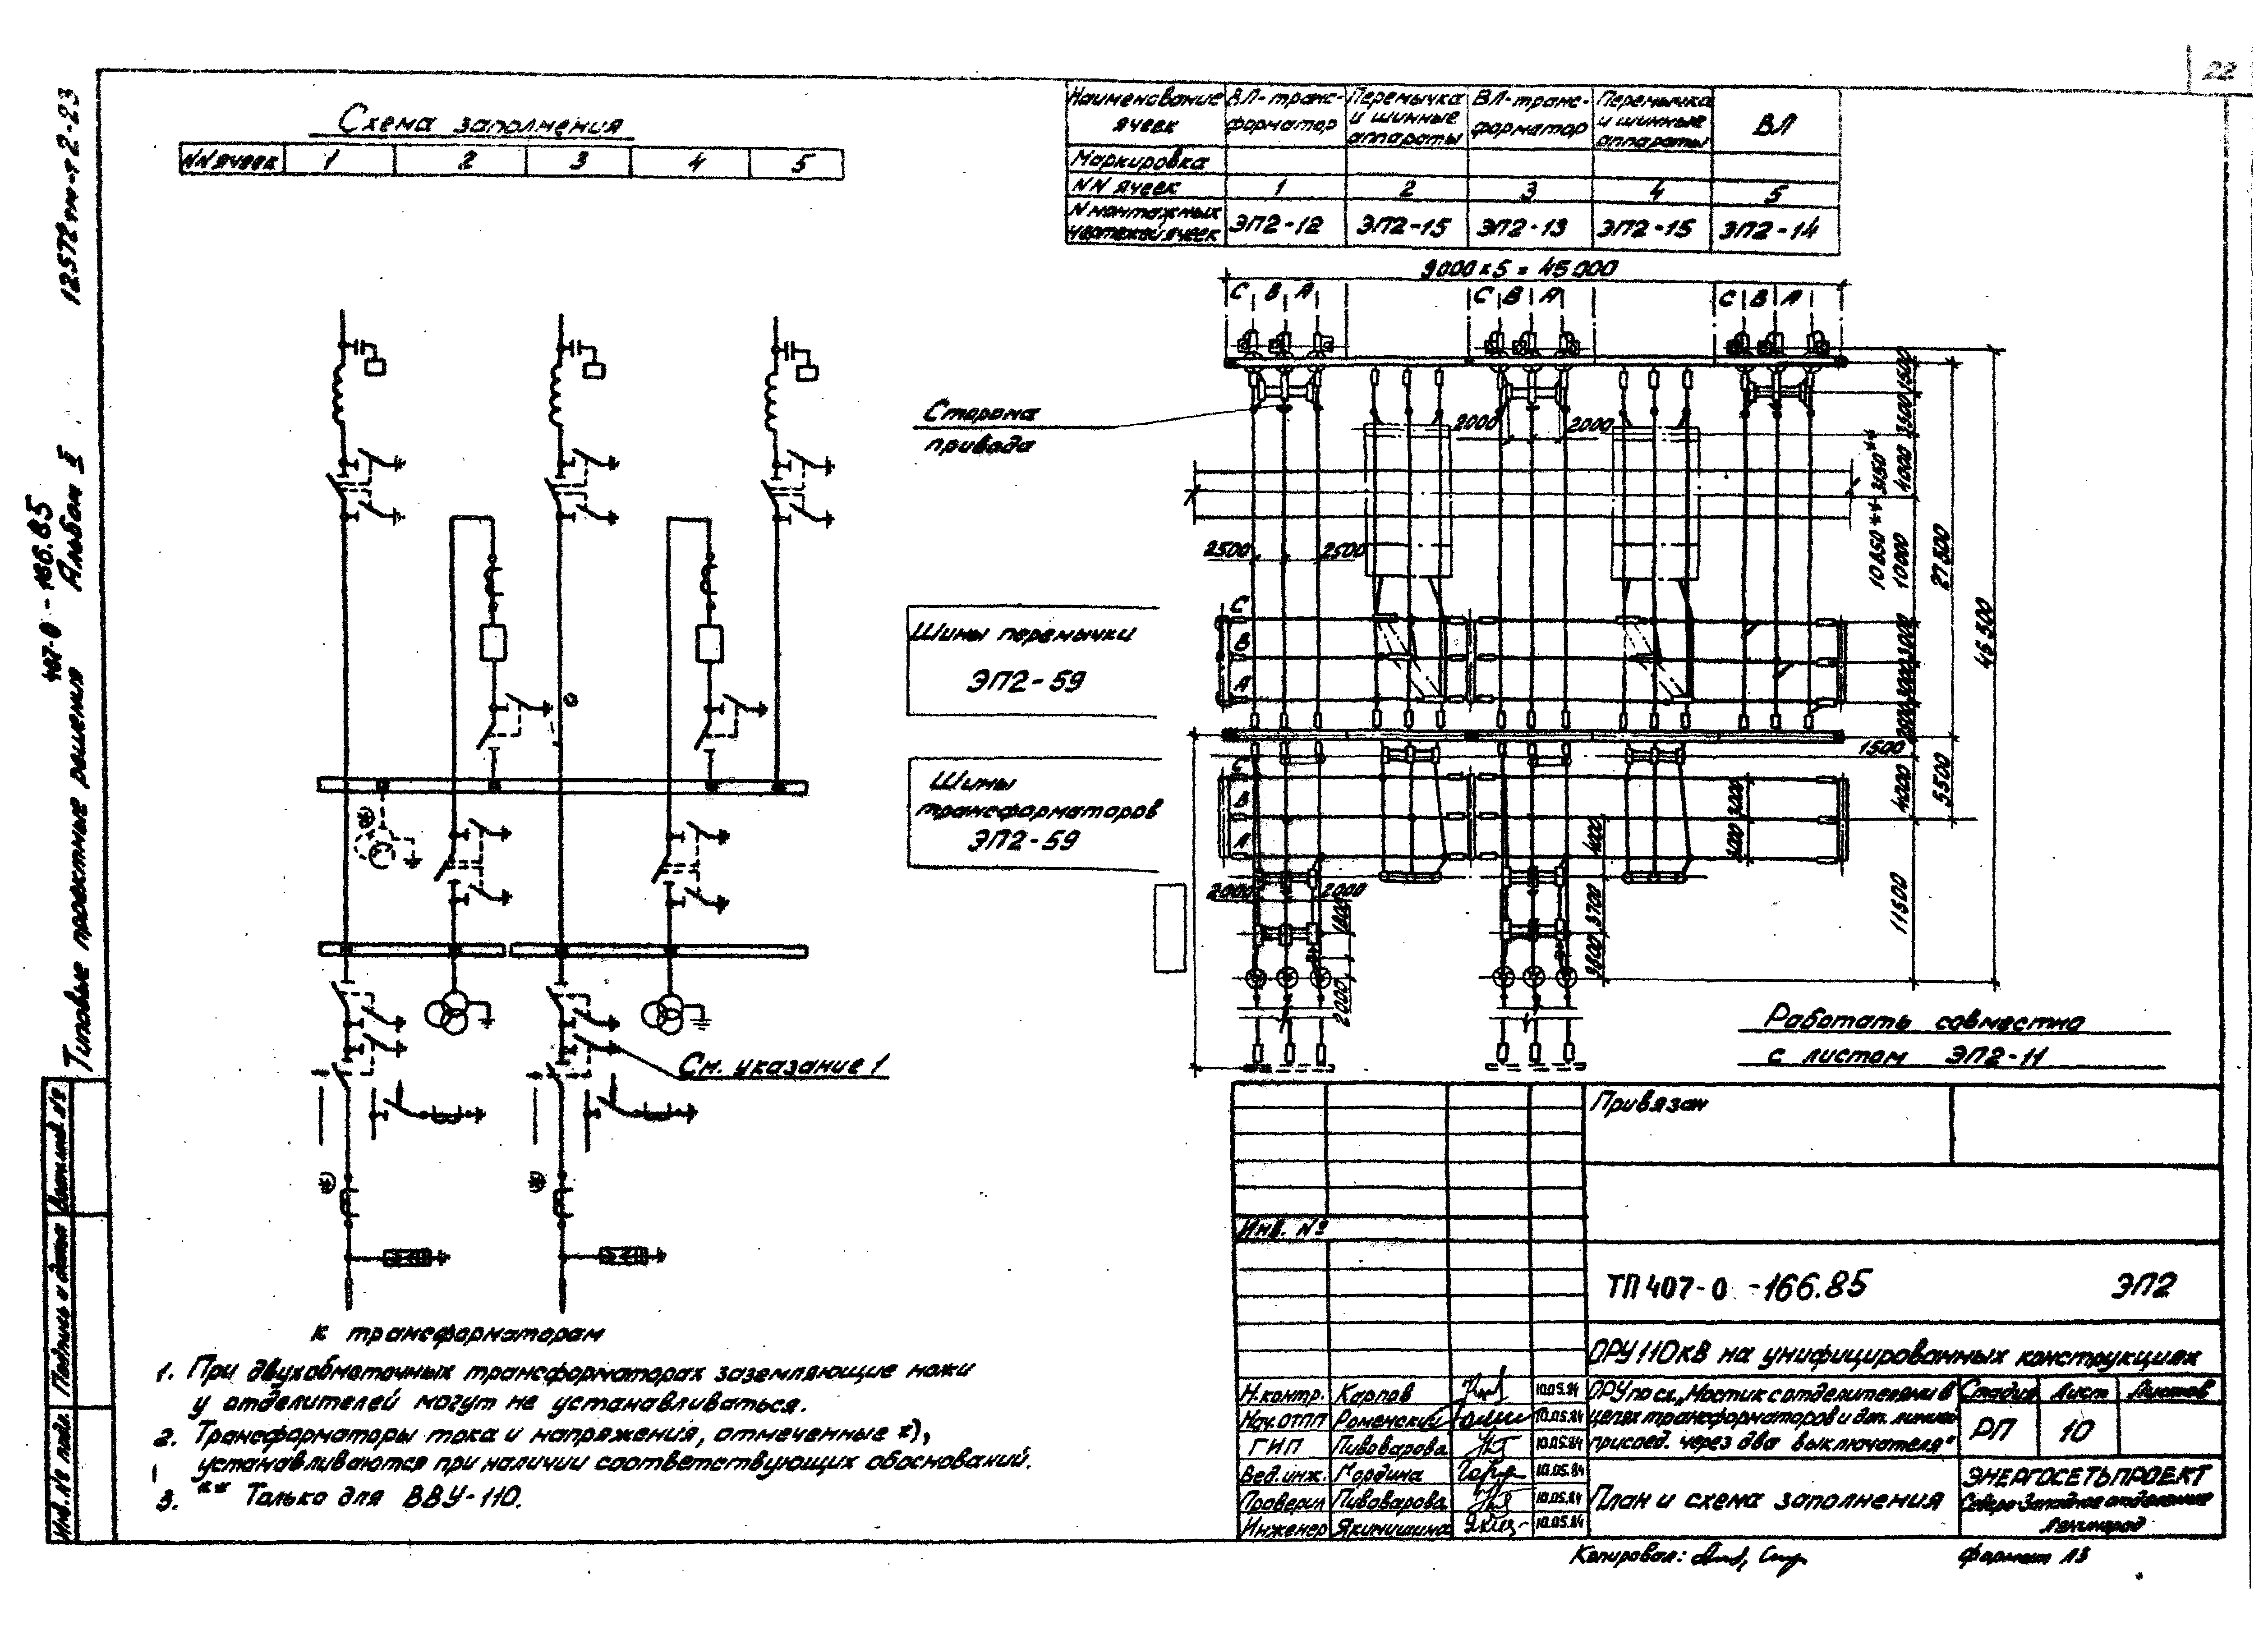 22
12572тм-т2-23
407-0-166.85
Типовые проектные решения Альбом II
Схема заполнения
NN ячеек 1 2 3 4 5
Наименование ячеек
ВЛ-трансформатор
Перемычка и шинные аппараты
ВЛ-трансформатор
Перемычка и шинные аппараты
ВЛ
Маркировка
NN ячеек 1 2 3 4 5
N монтажных чертежей ячеек
ЭП2-12 ЭП2-15 ЭП2-13 ЭП2-15 ЭП2-14
9000 x 5 = 45000
С В А С В А С В А
Сторона
привода
2000 2000
2500 2500
1500
3500
4000
3150**
10650**
10000
27500
45500
С
В
А
3000
3000
2500
1500
Шины перемычки
ЭП2-59
Шины
трансформаторов
ЭП2-59
С
В
А
4000
5500
3000
3000
2000 2000
1800
3700
11500
2000
См. указание 1
Работать совместно
с листом ЭП2-11
к трансформаторам
1. При двухобмоточных трансформаторах заземляющие ножи
у отделителей могут не устанавливаться.
2. Трансформаторы тока и напряжения, отмеченные *),
устанавливаются при наличии соответствующих обоснований.
3. ** Только для ВВУ-110.
Привязан
Инв. №
ТП 407-0-166.85 ЭП2
ОРУ 110кВ на унифицированных конструкциях
Н.контр. Карпов 10.05.84
Нач.ОТП Роменский 10.05.84
ГИП Пивоварова 10.05.84
Вед.инж. Мордина 10.05.84
Проверил Пивоварова 10.05.84
Инженер Якимишина 10.05.84
ОРУ по сх. „Мостик с отделителями в
цепях трансформаторов и доп. линией
присоед. через два выключателя"
Стадия Лист Листов
РП 10
План и схема заполнения
ЭНЕРГОСЕТЬПРОЕКТ
Северо-Западное отделение
Ленинград
Копировал:
Формат А3
Инв.№ подл. Подпись и дата Взам.инв.№